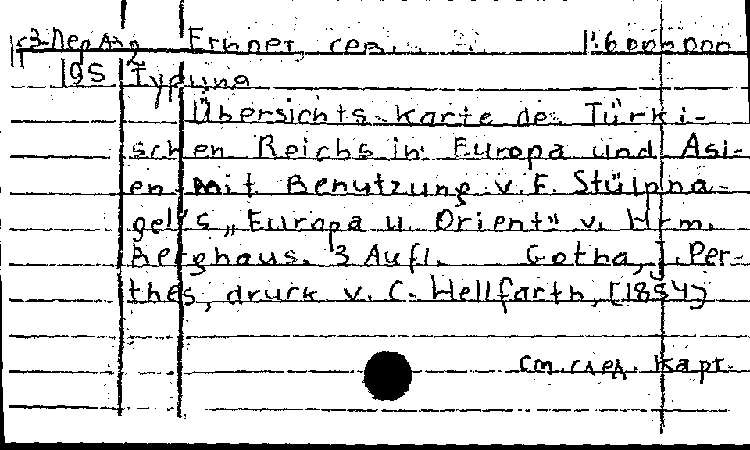 Египет, сев. 1:6000000
195 Турция
Übersichts-Karte des Türki-
schen Reichs in Europa und Asi-
en mit Benutzung v. F. Stülpna-
gel's „Europa u. Orient" v. Hrm.
Berghaus. 3 Aufl. Gotha, J. Per-
thes, druck v. C. Hellfarth, [1854]
см. след. карт.